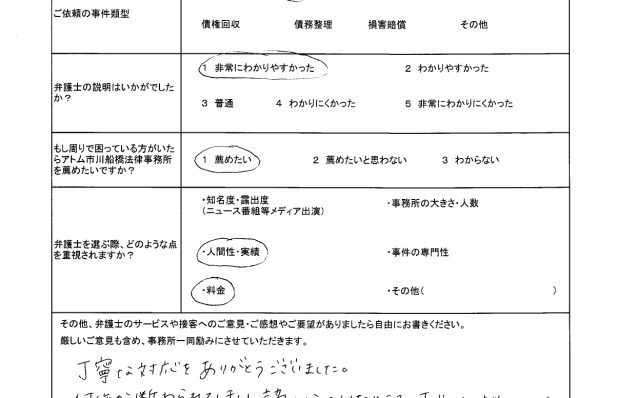 ご依頼の事件類型
債権回収 債務整理 損害賠償 その他
弁護士の説明はいかがでしたか?
1 非常にわかりやすかった 2 わかりやすかった
3 普通 4 わかりにくかった 5 非常にわかりにくかった
もし周りで困っている方がいたらアトム市川船橋法律事務所を薦めたいですか?
1 薦めたい 2 薦めたいと思わない 3 わからない
弁護士を選ぶ際、どのような点を重視されますか?
・知名度・露出度
(ニュース番組等メディア出演)
・事務所の大きさ・人数
・人間性・実績 ・事件の専門性
・料金 ・その他( )
その他、弁護士のサービスや接客へのご意見・ご感想やご要望がありましたら自由にお書きください。
厳しいご意見も含め、事務所一同励みにさせていただきます。
丁寧な対応をありがとうございました。